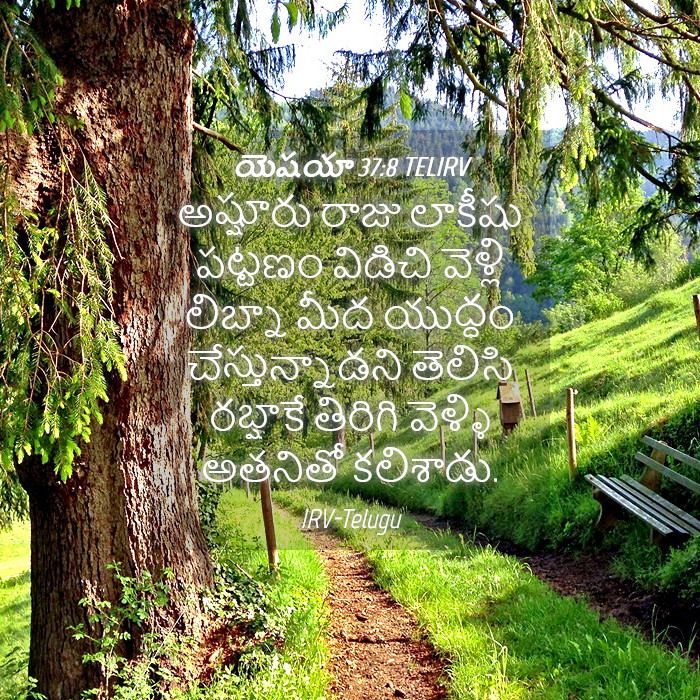 యెషయా 37:8 TELIRV
అష్షూరు రాజు లాకీషు
పట్టణం విడిచి వెళ్లి
లిబ్నా మీద యుద్ధం
చేస్తున్నాడని తెలిసి
రబ్షాకే తిరిగి వెళ్ళి
అతనితో కలిశాడు.
IRV-Telugu